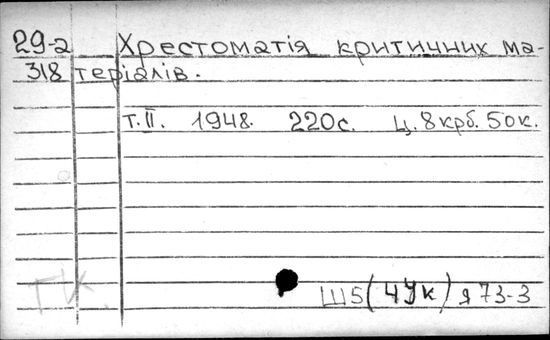 29-а Хрестоматія критичних ма-
318 теріалів.
т.II. 1948. 220с. ц. 8 крб. 50к.
Ш5(4Ук) я 73-3
ГК.